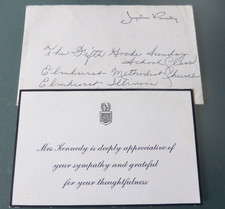 The Fifth Grade Sunday
School Class
Elmhurst Methodist Church
Elmhurst Illinois
Mrs Kennedy is deeply appreciative of
your sympathy and grateful
for your thoughtfulness